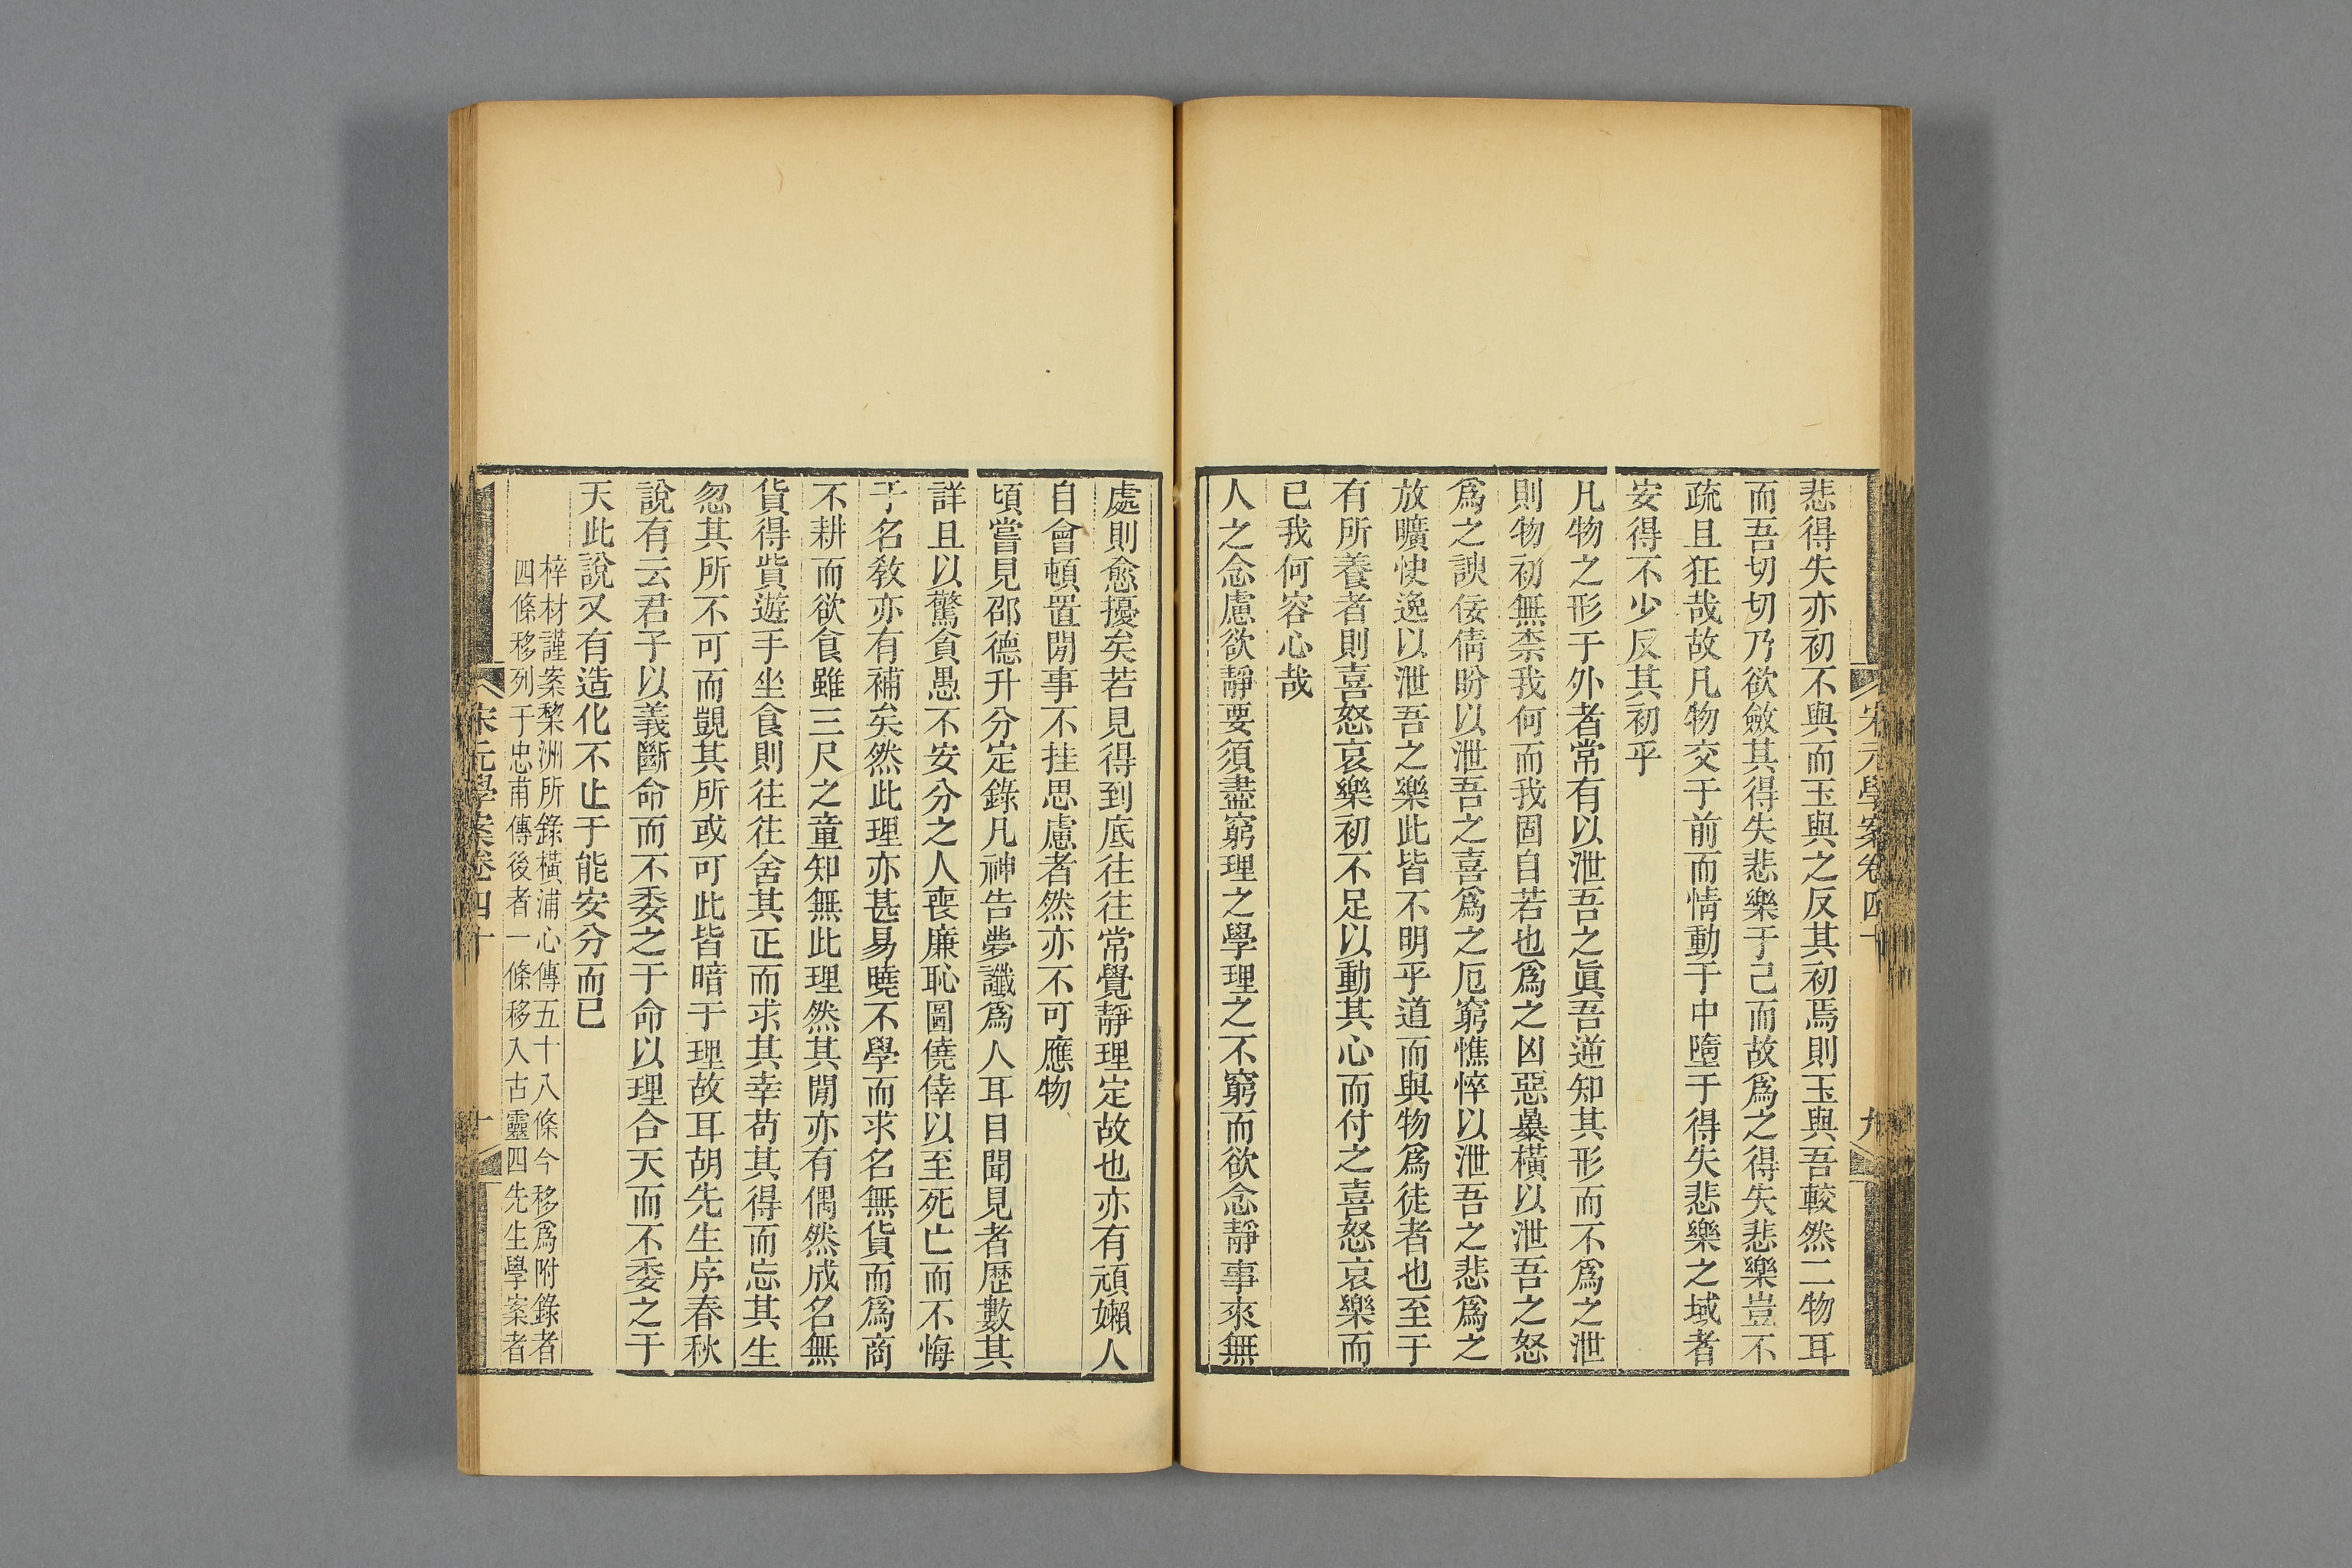 宋元學案卷四十
九
悲得失亦初不與而玉與之反其初焉則玉與吾較然二物耳
而吾切切乃欲斂其得失悲樂于己而故爲之得失悲樂豈不
疏且狂哉故凡物交于前而情動于中墮于得失悲樂之域者
安得不少反其初乎
凡物之形于外者常有以泄吾之眞吾逆知其形而不爲之泄
則物初無柰我何而我固自若也爲之凶惡暴橫以泄吾之怒
爲之諛佞倩盼以泄吾之喜爲之厄窮憔悴以泄吾之悲爲之
放曠快逸以泄吾之樂此皆不明乎道而與物爲徒者也至于
有所養者則喜怒哀樂初不足以動其心而付之喜怒哀樂而
已我何容心哉
人之念慮欲靜要須盡窮理之學理之不窮而欲念靜事來無
處則愈擾矣若見得到底往往常覺靜理定故也亦有頑嬾人
自會頓置閒事不挂思慮者然亦不可應物
頃嘗見邵德升分定錄凡神告夢讖爲人耳目聞見者歷數其
詳且以驚貪愚不安分之人喪廉恥圖僥倖以至死亡而不悔
于名敎亦有補矣然此理亦甚易曉不學而求名無貨而爲商
不耕而欲食雖三尺之童知無此理然其閒亦有偶然成名無
貨得貲遊手坐食則往往舍其正而求其幸苟其得而忘其生
忽其所不可而覬其所或可此皆暗于理故耳胡先生序春秋
說有云君子以義斷命而不委之于命以理合天而不委之于
天此說又有造化不止于能安分而已
梓材謹案黎洲所錄橫浦心傳五十八條今移爲附錄者
四條移列于忠甫傳後者一條移入古靈四先生學案者
宋元學案卷四十
十